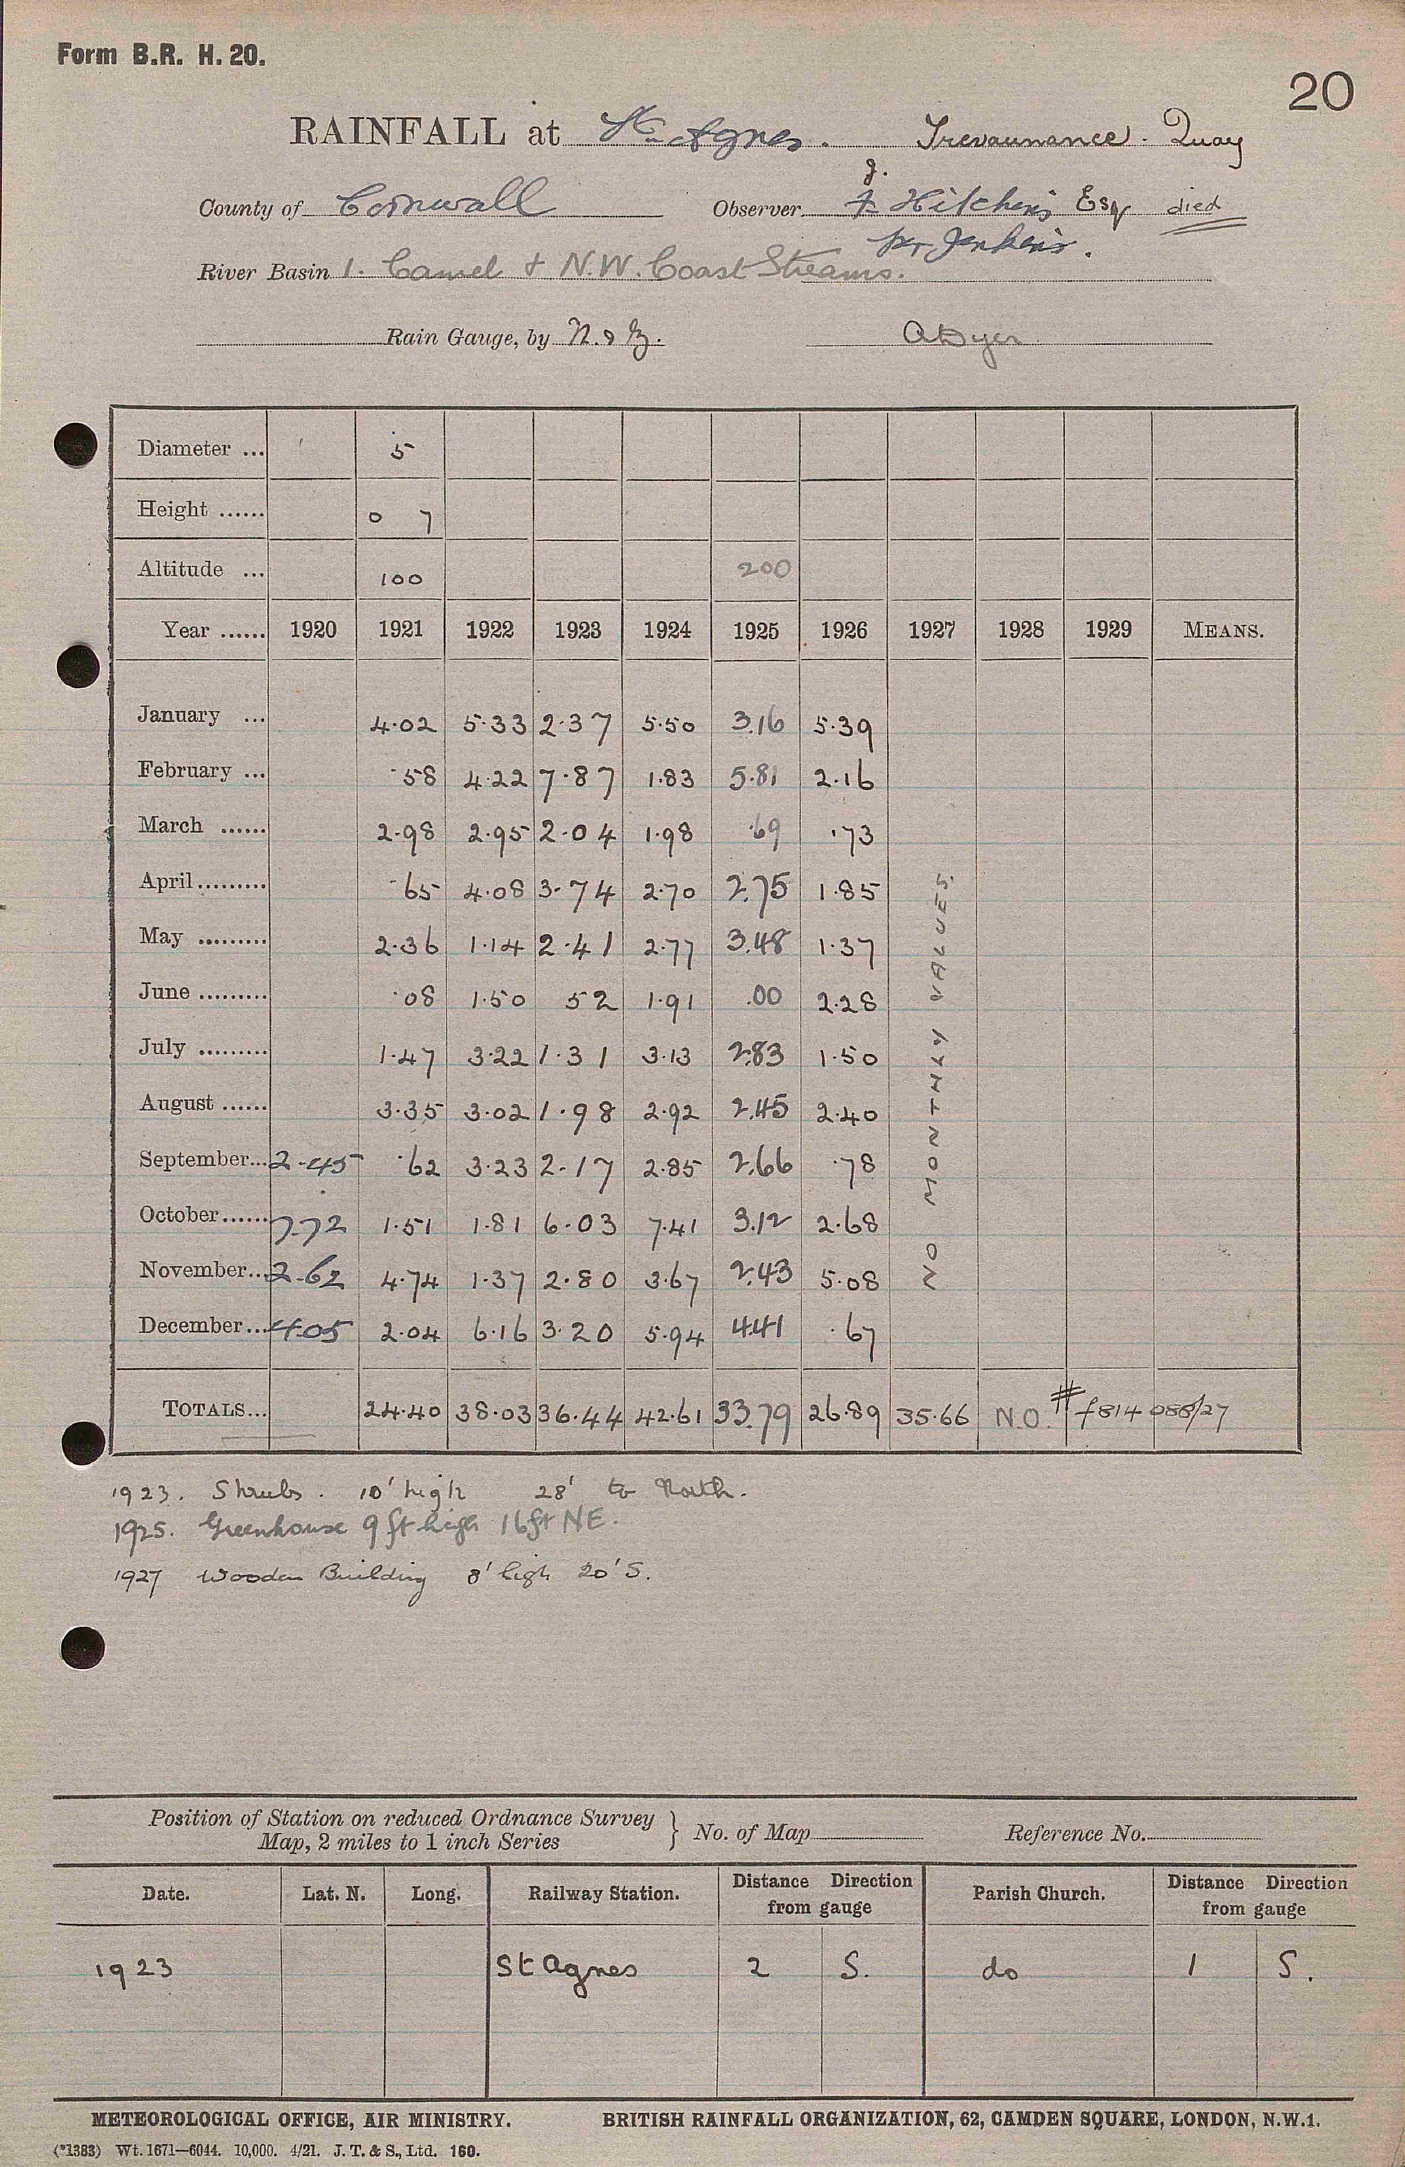 Form B.R. H. 20.
20
RAINFALL at St. Agnes. Trevaunance. Quay
J.
County of Cornwall Observer F Hitchens Esq died
per Jenkins.
River Basin 1. Camel & N.W. Coast Streams.
Rain Gauge, by N. & Z. A Dyer
Diameter ... 5
Height ...... 0 7
Altitude ... 100 200
Year ...... 1920 1921 1922 1923 1924 1925 1926 1927 1928 1929 MEANS.
January ... 4.02 5.33 2.37 5.50 3.16 5.39
February ... .58 4.22 7.87 1.83 5.81 2.16
March ...... 2.98 2.95 2.04 1.98 .69 .73
April ......... .65 4.08 3.74 2.70 2.75 1.85
May ......... 2.36 1.14 2.41 2.77 3.48 1.37
June ......... .08 1.50 52 1.91 .00 2.28
July ......... 1.47 3.22 1.31 3.13 2.83 1.50
August ...... 3.35 3.02 1.98 2.92 2.45 2.40
September... 2.45 .62 3.23 2.17 2.85 2.66 .78
October...... 7.72 1.51 1.81 6.03 7.41 3.12 2.68
November... 2.62 4.74 1.37 2.80 3.67 2.43 5.08
December... 4.05 2.04 6.16 3.20 5.94 4.41 .67
NO MONTHLY VALUES.
TOTALS... 24.40 38.03 36.44 42.61 33.79 26.89 35.66 N.O. # f814 088/27
1923. Shrubs. 10' high 28' to North.
1925. Greenhouse 9 ft high 16 ft NE.
1927 Wooden Building 8' high 20' S.
Position of Station on reduced Ordnance Survey
Map, 2 miles to 1 inch Series } No. of Map Reference No.
Date. Lat. N. Long. Railway Station. Distance Direction from gauge Parish Church. Distance Direction from gauge
1923 St Agnes 2 S. do 1 S.
METEOROLOGICAL OFFICE, AIR MINISTRY. BRITISH RAINFALL ORGANIZATION, 62, CAMDEN SQUARE, LONDON, N.W.1.
(*1383) Wt. 1671—6044. 10,000. 4/21. J. T. & S., Ltd. 160.